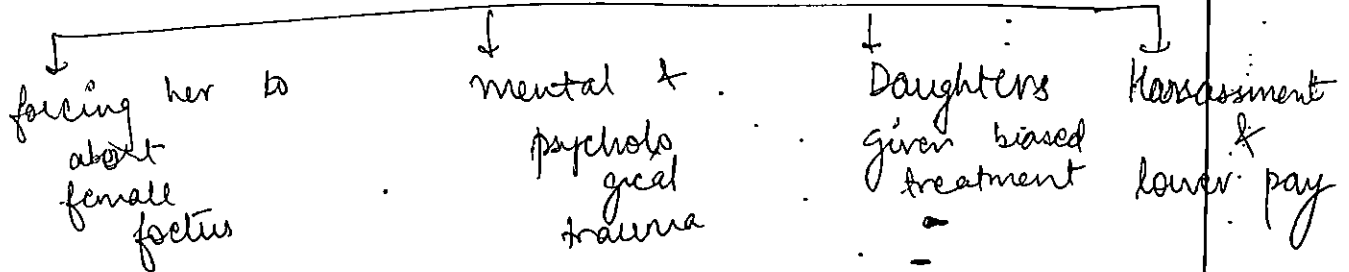 forcing her to
abort
female
foetus
mental &
psycholo
gical
trauma
Daughters
given biased
treatment
Harsassment
&
lower pay